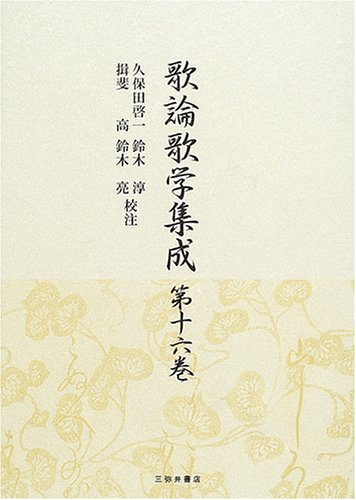 歌論歌学集成 第十六巻
久保田啓一 鈴木 淳
揖斐 高 鈴木 亮 校注
三弥井書店